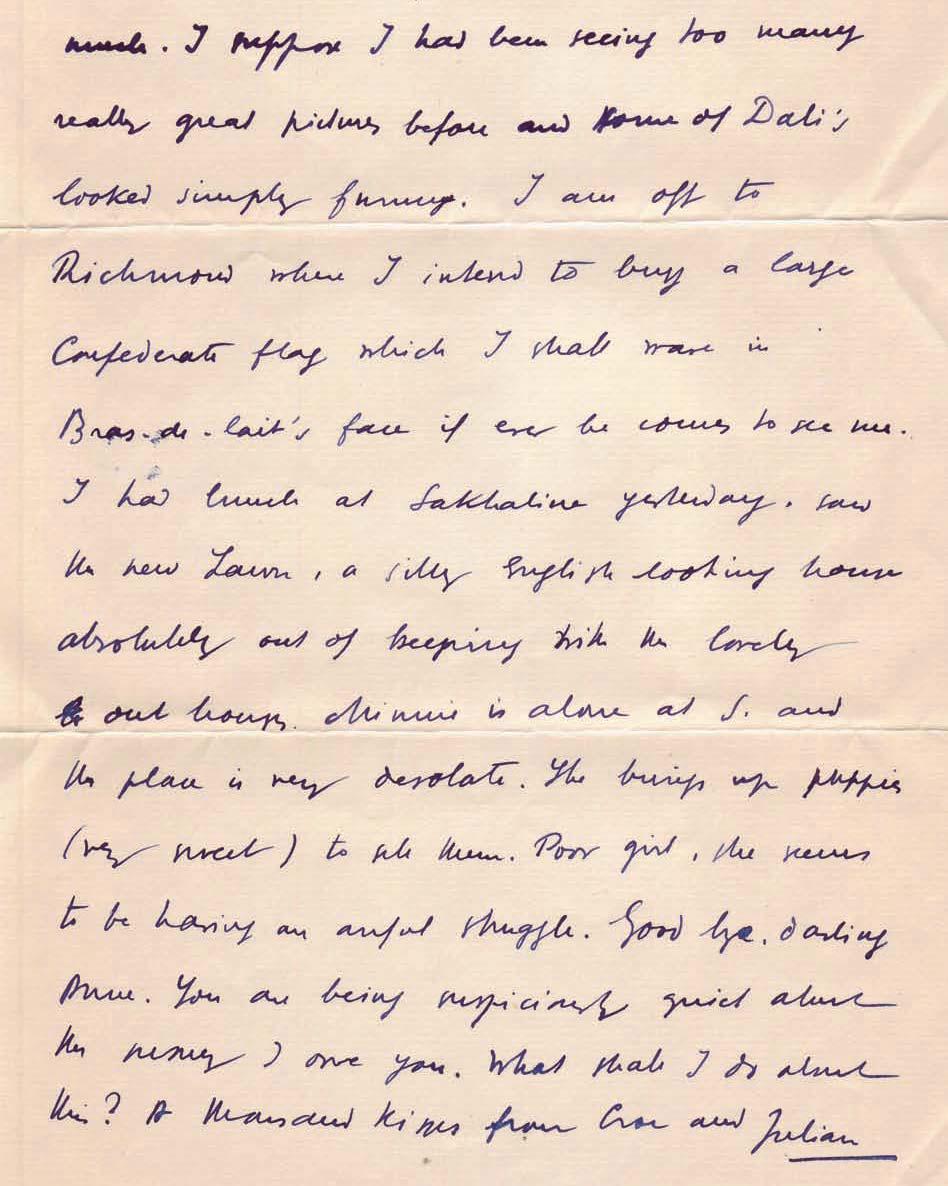 much. I suppose I had been seeing too many
really great pictures before and some of Dali's
looked simply funny. I am off to
Richmond where I intend to buy a large
Confederate flag which I shall wave in
Bras-de-lait's face if ever he comes to see me.
I had lunch at Sakhaline yesterday. saw
the new Lawn, a silly English looking house
absolutely out of keeping with the lovely
out houses. Minnie is alone at S. and
the place is very desolate. She brings up puppies
(very sweet) to sell them. Poor girl, she seems
to be having an awful struggle. Good bye, darling
Anne. You are being suspiciously quiet about
the money I owe you. What shall I do about
this? A thousand kisses from and Julian